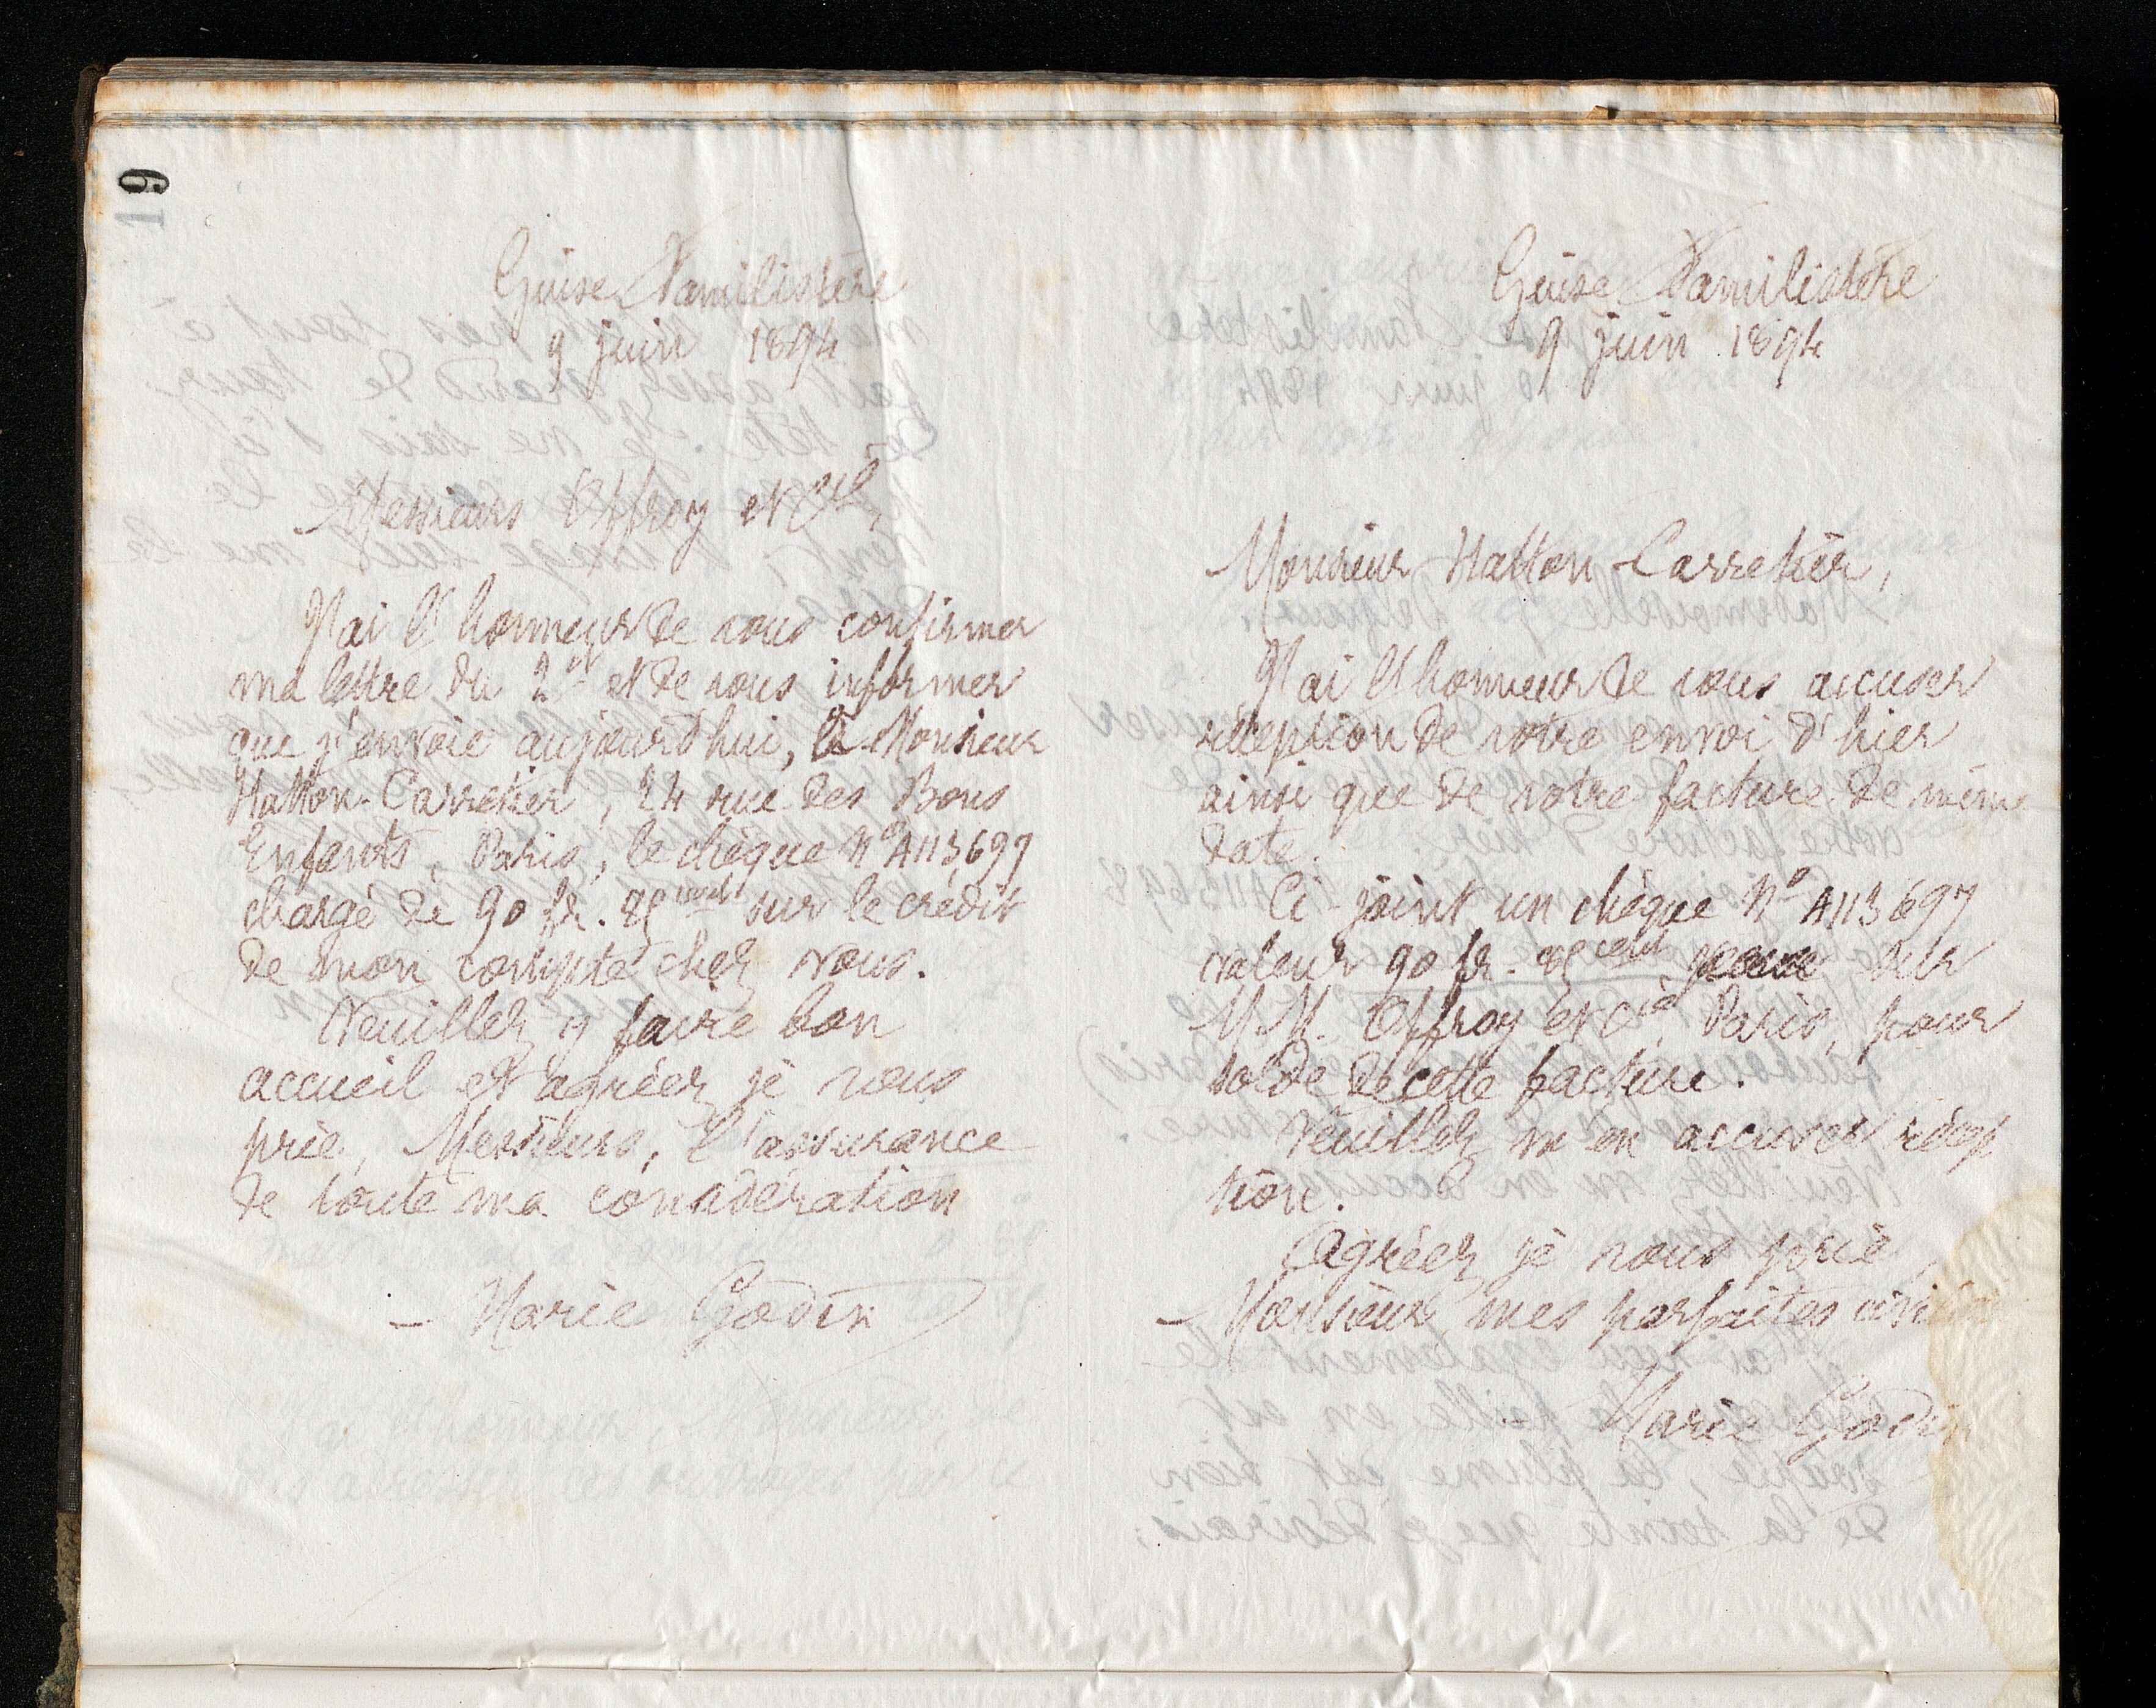 19
Guise Familistère
9 juin 1894
Messieurs Offroy et Cie,
J'ai l'honneur de vous confirmer
ma lettre du 2 ct et de vous informer
que j'envoie aujourd'hui, à Monsieur
Hatton-Carretier, 24 rue des Bons
Enfants, Paris, le chèque No A113,697
chargé de 90 fr. cent sur le crédit
de mon compte chez vous.
Veuillez y faire bon
accueil et agréer je vous
prie, Messieurs, l'assurance
de toute ma considération
Marie Godin
Guise Familistère
9 juin 1894
Monsieur Hatton-Carretier,
J'ai l'honneur de vous accuser
réception de votre envoi d'hier
ainsi que de votre facture de même
date.
Ci-joint un chèque No A113697
valeur 90 fr. cent sur
M.M. Offroy et Cie, Paris, pour
solde de cette facture.
Veuillez m'en accuser récep
tion.
Agréez je vous prie,
Monsieur, mes parfaites
Marie Godin